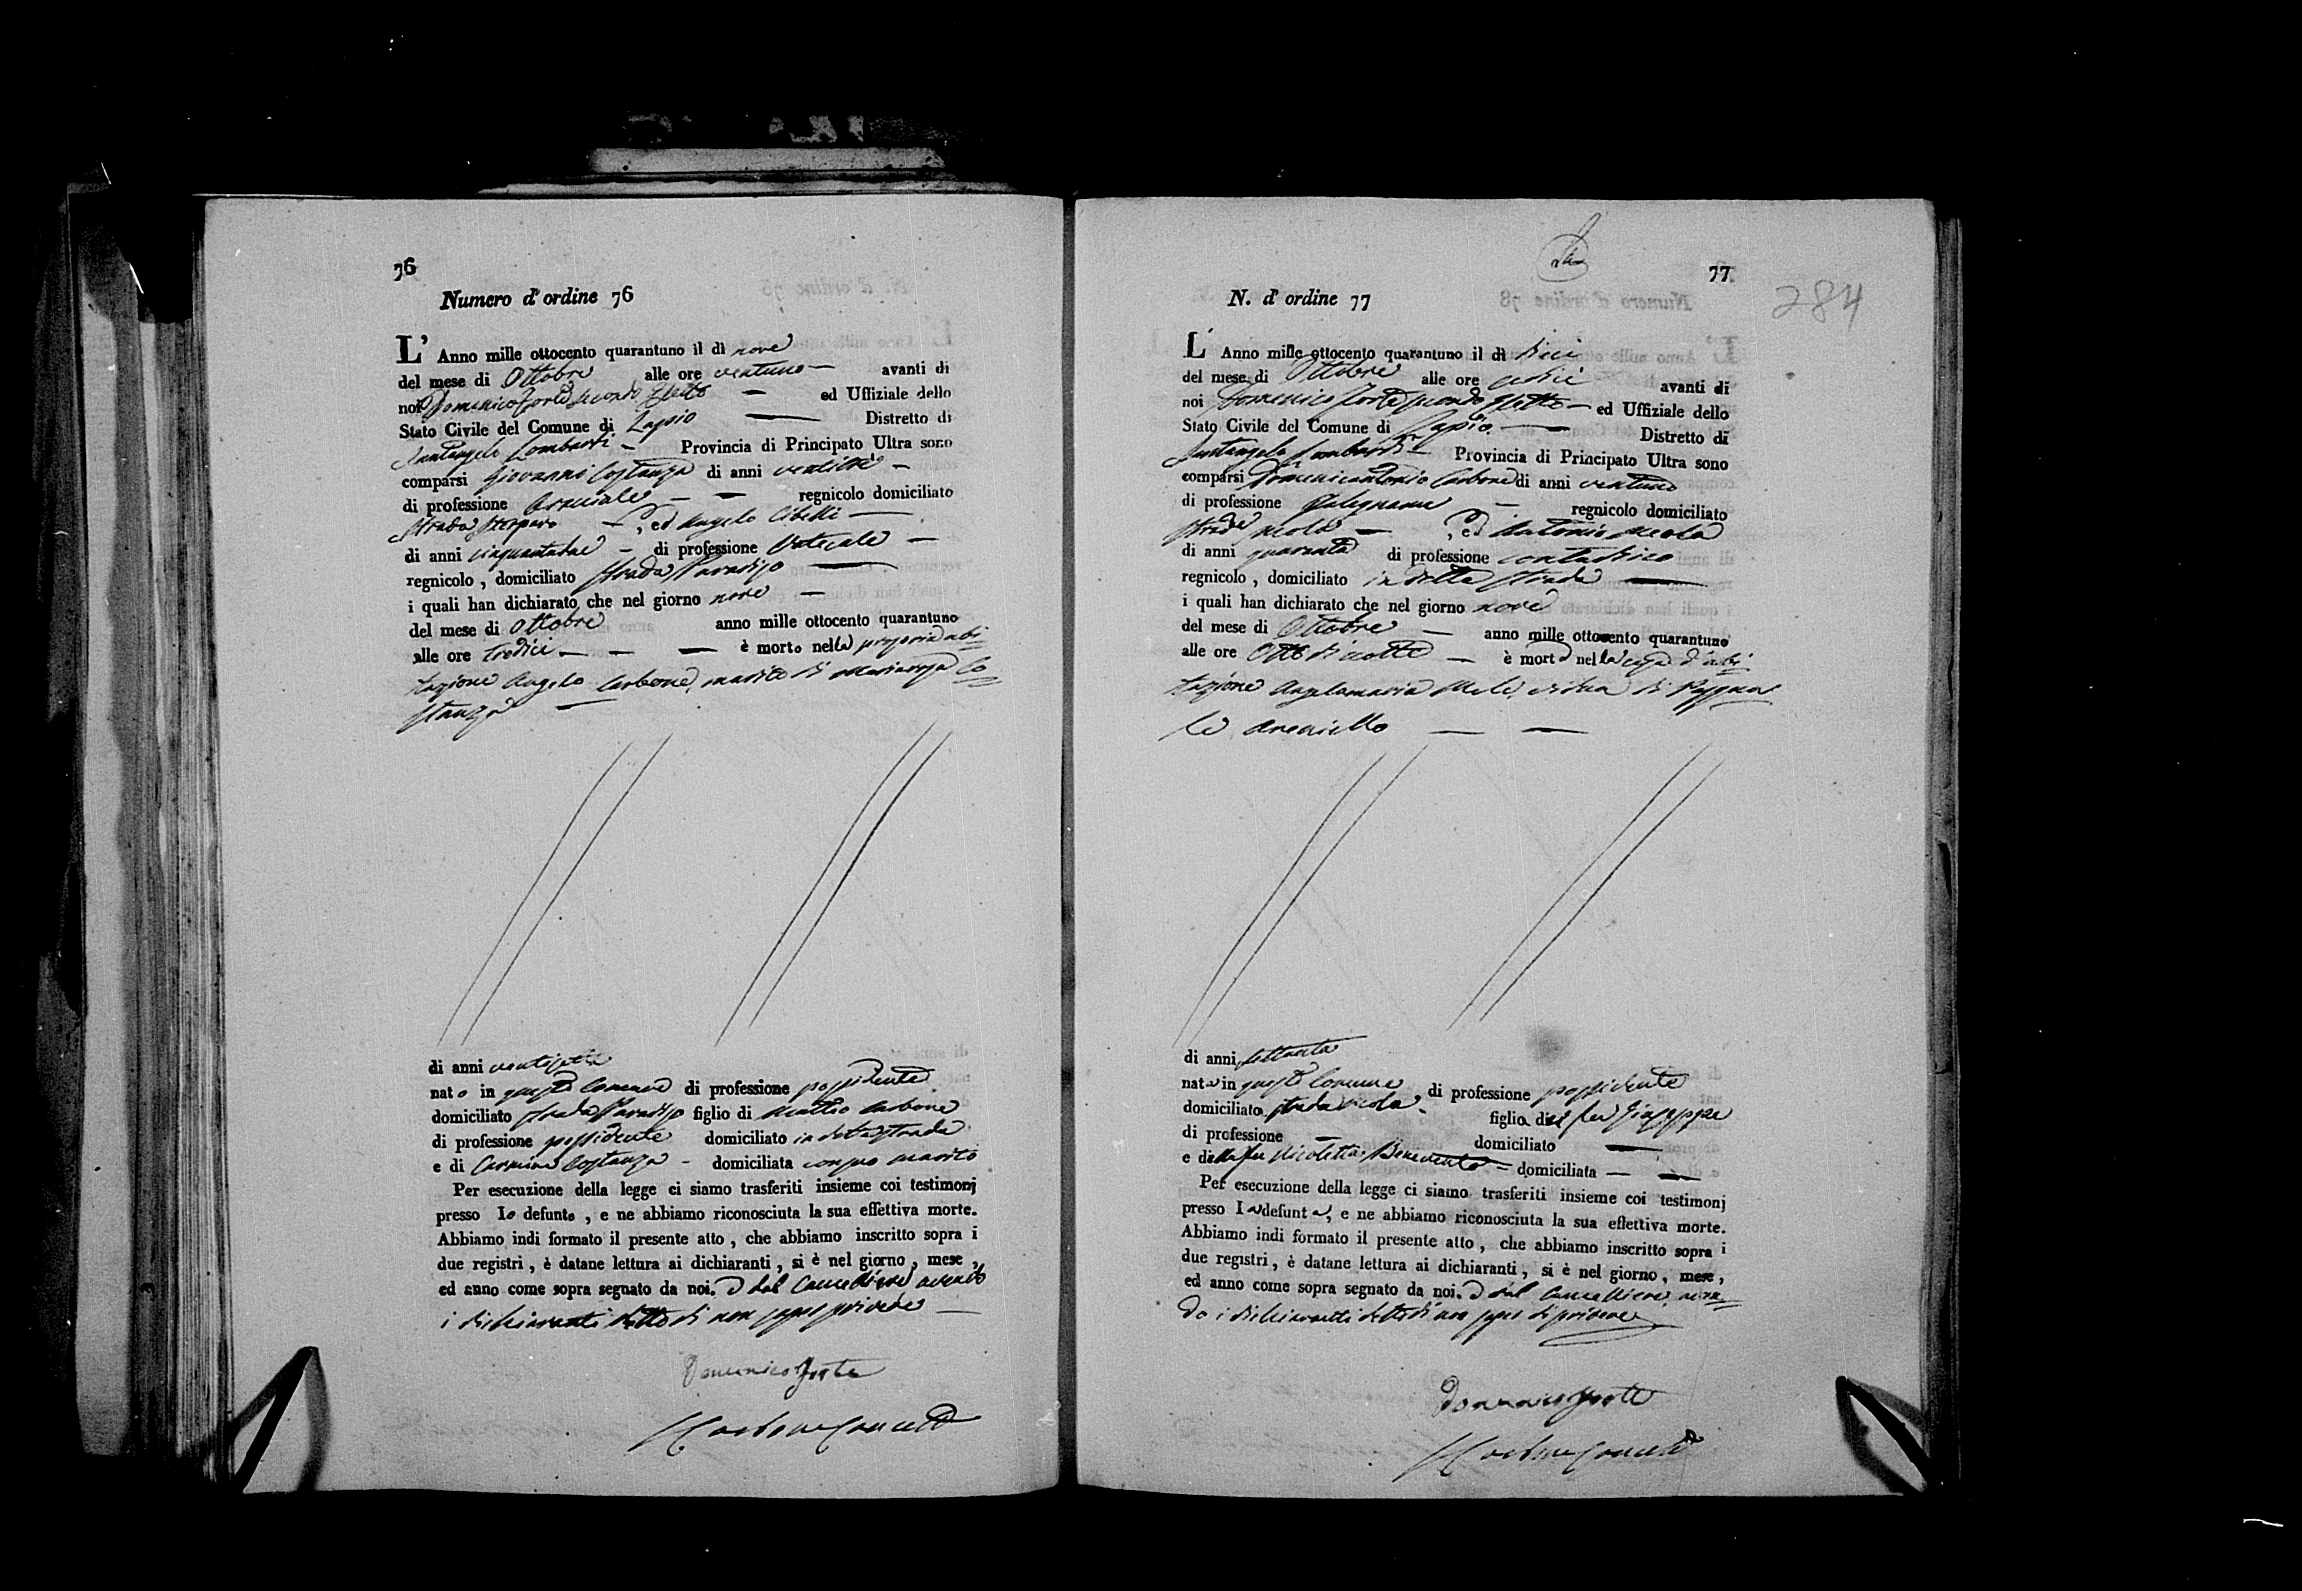 76
Numero d'ordine 76
L' Anno mille ottocento quarantuno il dì nove
del mese di Ottobre alle ore ventuno — avanti di
noi Domenico Forte secondo Eletto — ed Uffiziale dello
Stato Civile del Comune di Lapio — Distretto di
Santangelo Lombardi — Provincia di Principato Ultra sono
comparsi Giovanni Costanza di anni ventitre —
di professione Bracciale — — regnicolo domiciliato
Strada — , ed Angelo Cibelli —
di anni cinquantadue — di professione Vaticale —
regnicolo , domiciliato Strada Paradiso —
i quali han dichiarato che nel giorno nove —
del mese di Ottobre anno mille ottocento quarantuno
alle ore tredici — — — è morto nella propria abi=
tazione Angelo Carbone, marito di Mariarosa Co=
stanza —
di anni ventisette
nato in questo Comune di professione possidente
domiciliato strada Paradiso figlio di Matteo Carbone
di professione possidente domiciliato in detta strada
e di Carmina Costanza - domiciliata con suo marito
Per esecuzione della legge ci siamo trasferiti insieme coi testimonj
presso lo defunto , e ne abbiamo riconosciuta la sua effettiva morte.
Abbiamo indi formato il presente atto , che abbiamo inscritto sopra i
due registri , è datane lettura ai dichiaranti , si è nel giorno , mese ,
ed anno come sopra segnato da noi. e dal Cancelliere avendo
i dichiaranti detto di non saper scrivere —
Domenico Forte
Carbone Cancell
77
284
N. d' ordine 77
L' Anno mille ottocento quarantuno il dì dieci
del mese di Ottobre alle ore sedici avanti di
noi Domenico Forte secondo Eletto — ed Uffiziale dello
Stato Civile del Comune di Lapio. — Distretto di
Santangelo Lombardi — Provincia di Principato Ultra sono
comparsi Domenicantonio Carbone di anni ventuno
di professione Falegname — regnicolo domiciliato
strada Meola — , ed Antonio Meola
di anni quaranta di professione contadino
regnicolo , domiciliato in detta strada —
i quali han dichiarato che nel giorno nove
del mese di Ottobre — anno mille ottocento quarantuno
alle ore otto di notte — è morta nella casa d'abi=
tazione Angelamaria Mele, vedova di Pasqua=
le Areniello — —
di anni settanta
nata in questo Comune di professione possidente
domiciliato strada Meola. figlia del fu Giuseppe
di professione — domiciliato —
e della fu Nicoletta Benevento = domiciliata — —
Per esecuzione della legge ci siamo trasferiti insieme coi testimonj
presso la defunta , e ne abbiamo riconosciuta la sua effettiva morte.
Abbiamo indi formato il presente atto , che abbiamo inscritto sopra i
due registri , è datane lettura ai dichiaranti , si è nel giorno , mese ,
ed anno come sopra segnato da noi. e dal Cancelliere, aven=
do i dichiaranti detto di non saper di scrivere
Domenico Forte
Carbone Cancell